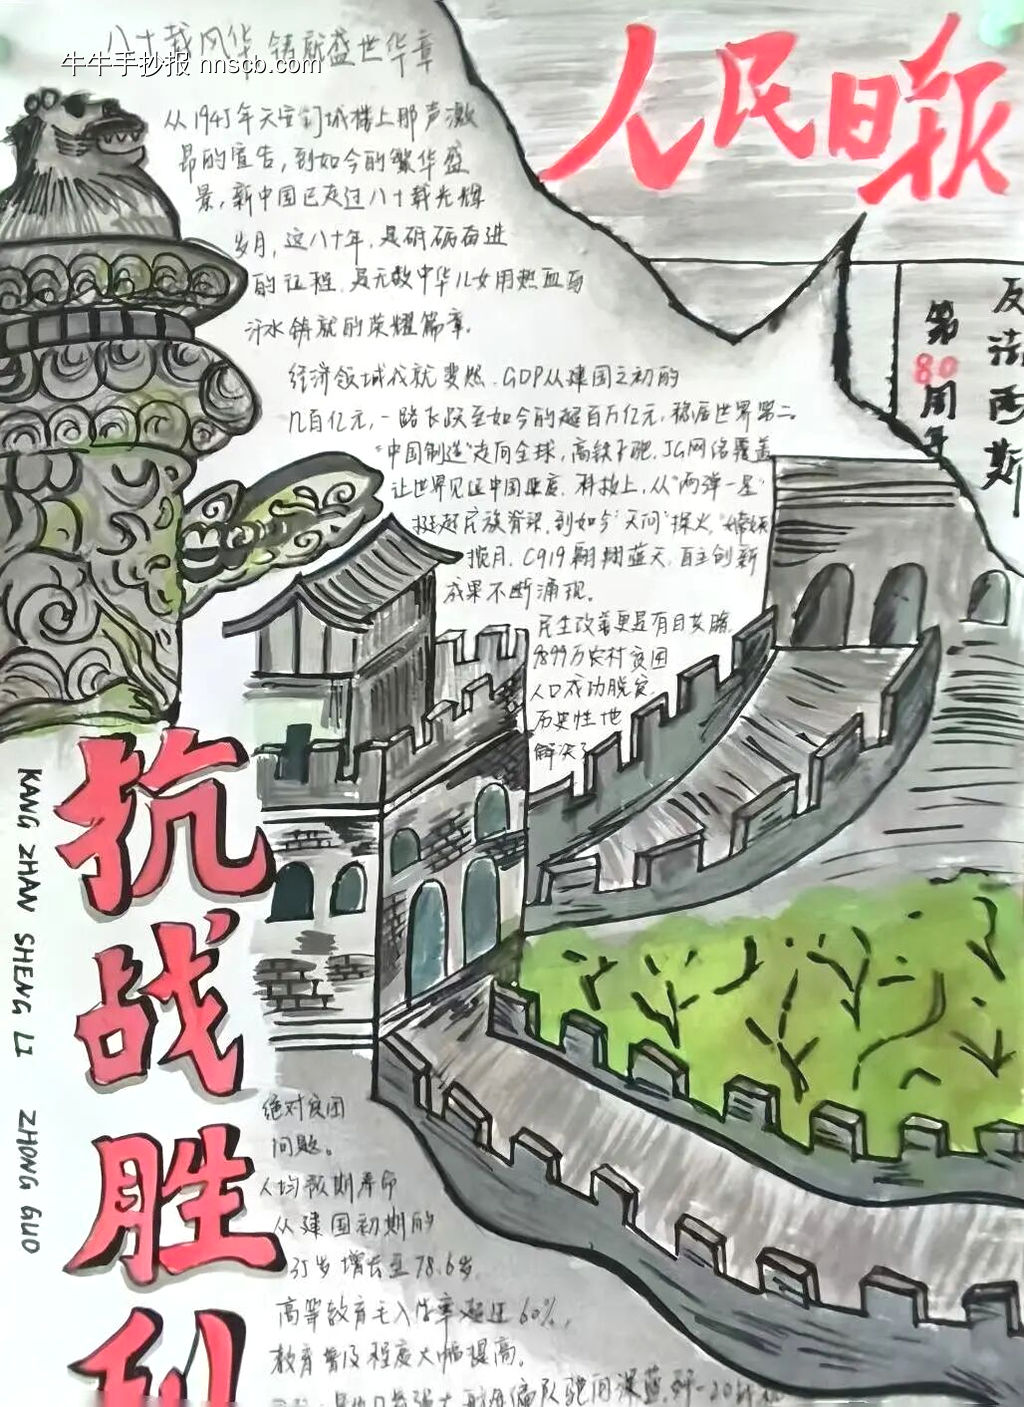 八十载风华 铸就盛世华章
牛牛手抄报 nnscb.com
人民日报
反法西斯
第80周年
从1945年天安门城楼上那声激
昂的宣告，到如今的繁华盛
景，新中国已走过八十载光辉
岁月，这八十年，是砥砺奋进
的征程，是无数中华儿女用热血与
汗水铸就的荣耀篇章。
经济领域成就斐然，GDP从建国之初的
几百亿元，一路长跃至如今的超百万亿元，稳居世界第二。
“中国制造”走向全球，高铁飞驰，5G网络覆盖
让世界见证中国速度，科技上，从“两弹一星”
挺起民族脊梁，到如今“天问”探火，“嫦娥
揽月，C919翱翔蓝天，自主创新
成果不断涌现。
民生改善更是有目共睹，
9899万农村贫困
人口成功脱贫，
历史性地
解决了
绝对贫困
问题。
人均预期寿命
从建国初期的
35岁增长至78.6岁，
高等教育毛入学率超过60%，
教育普及程度大幅提高。
抗战胜利
KANG ZHAN SHENG LI ZHONG GUO